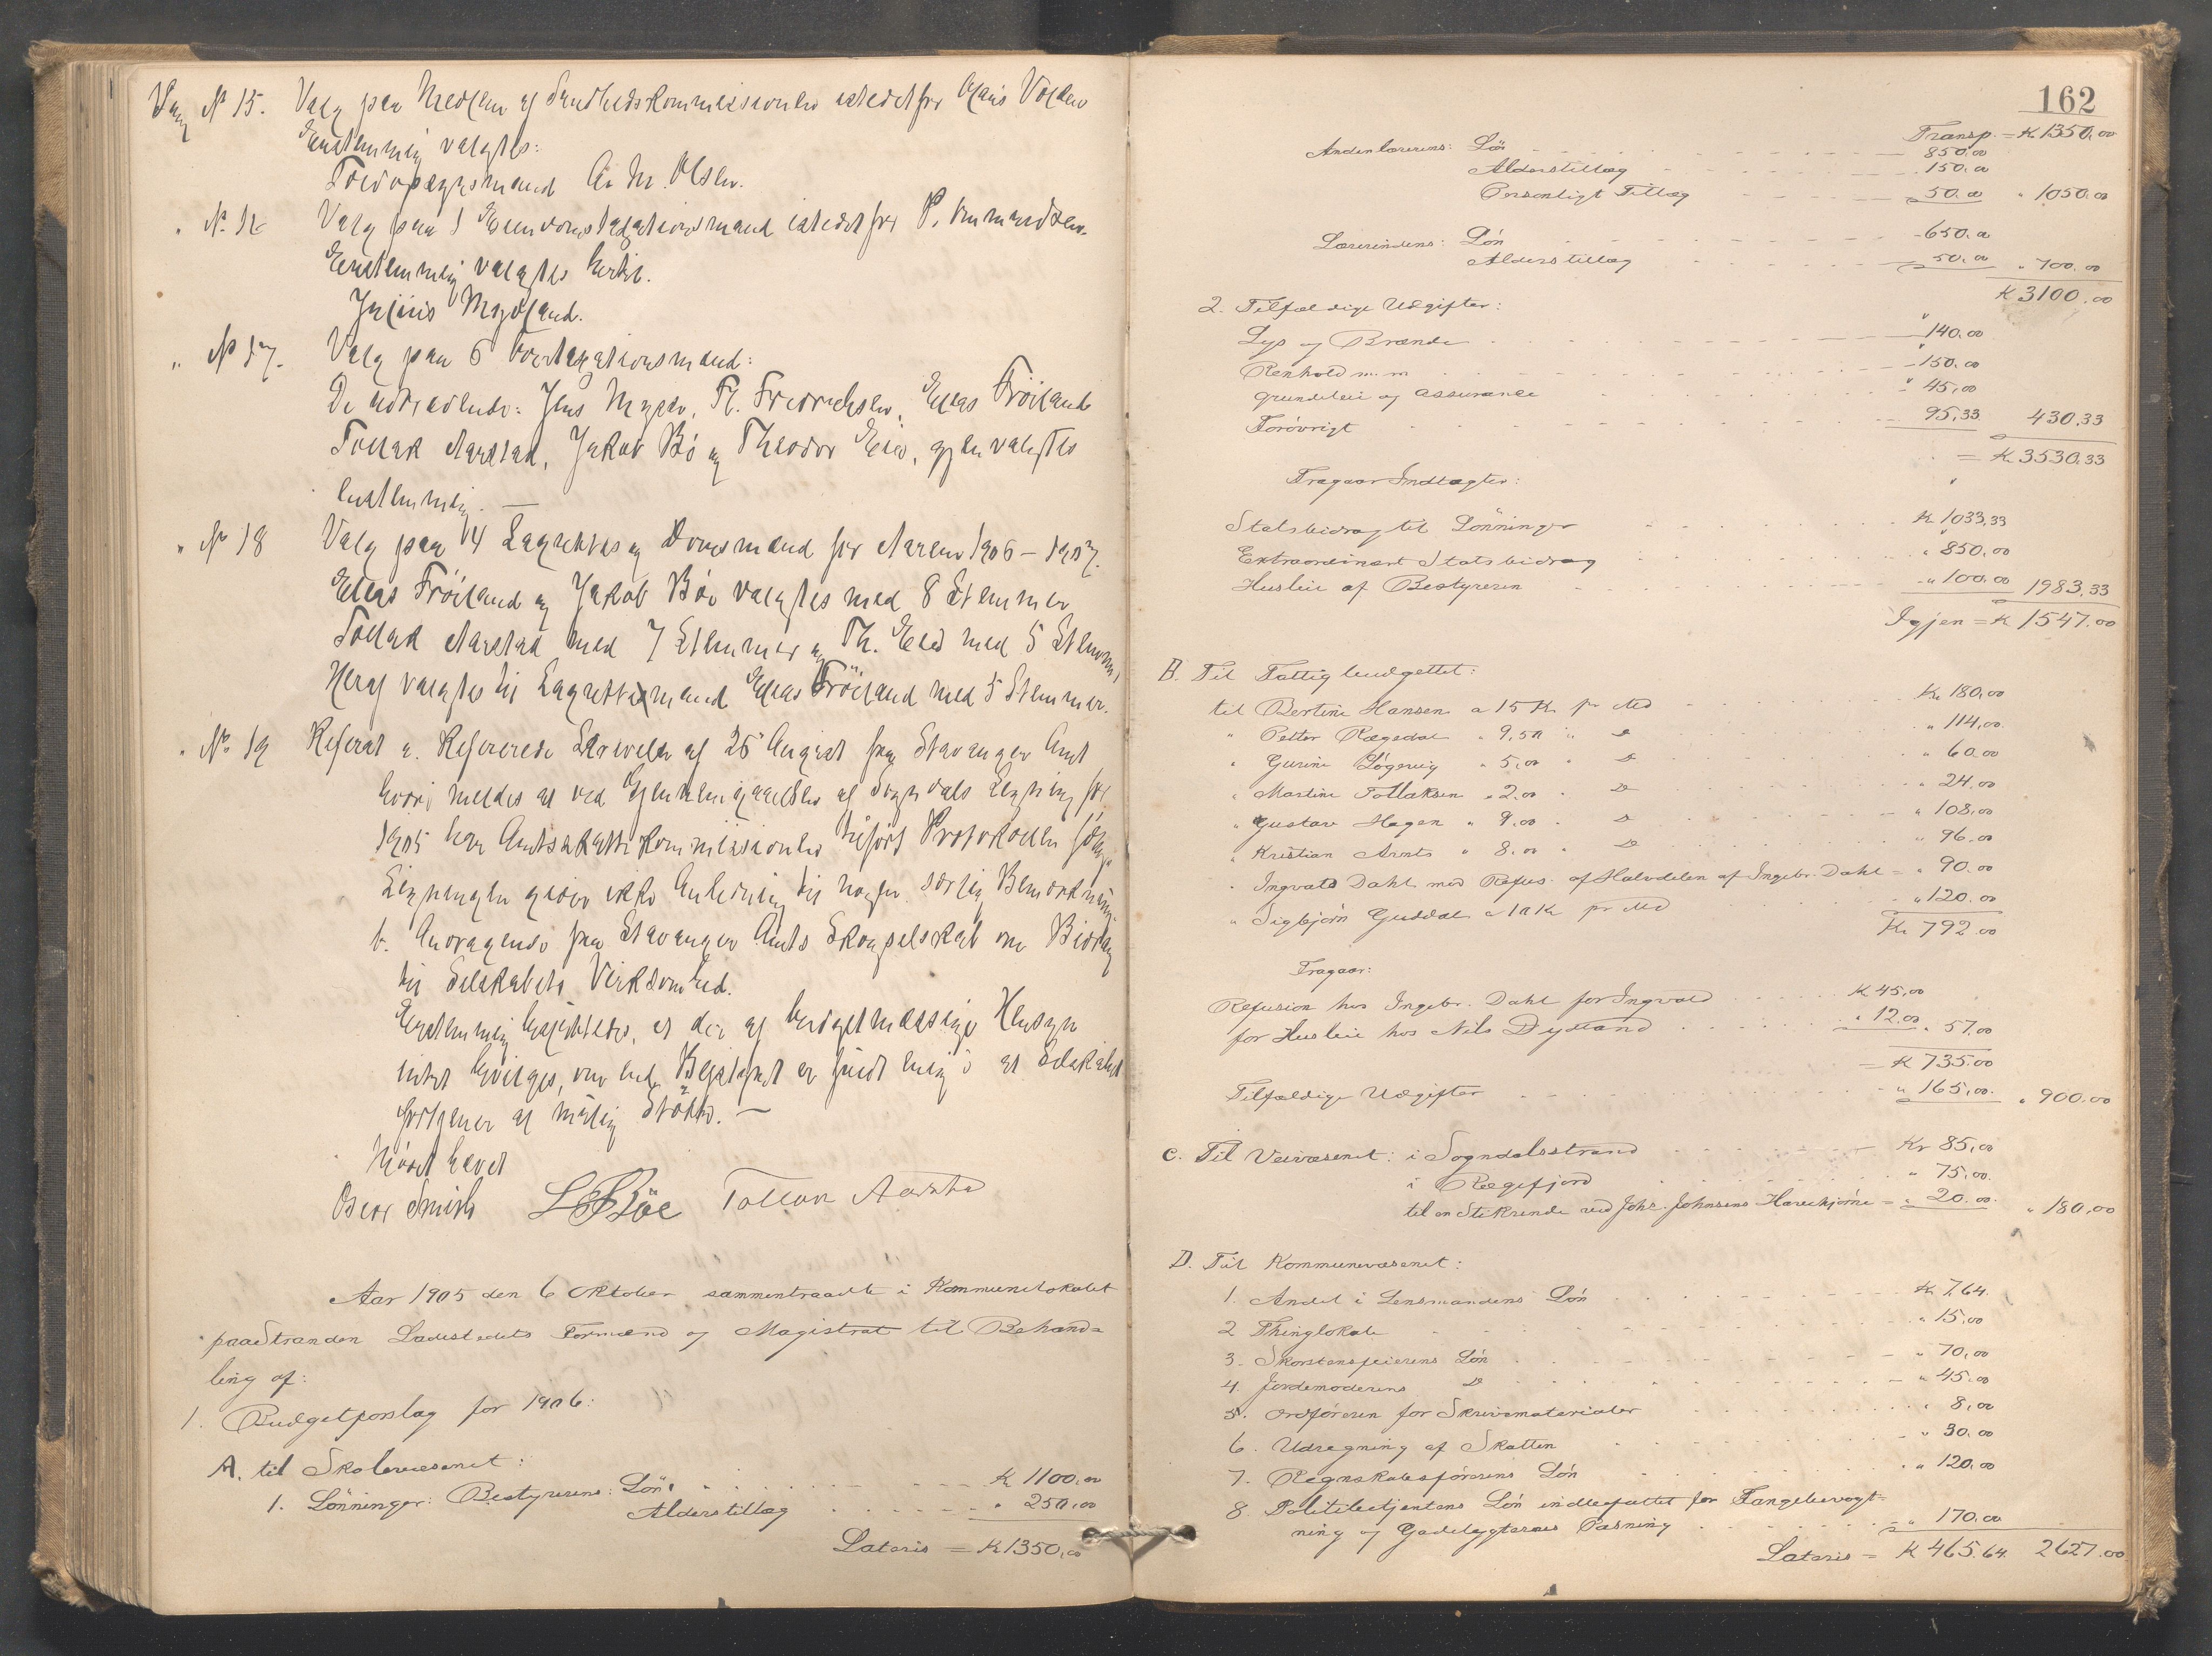 Sag No 15. Valg paa Medlem af Sundhedskommissionen istedetfor Olaus Volden
Enstemmig valgtes:
A. M. Olsen.
" No. 16 Valg paa 1 Eiendomstaxationsmand istedet for P. Ommundsen.
Enstemmig valgtes hertil.
Julius Mydland.
" No 17. Valg paa 6 Overtaxationsmænd:
De udtrædende: Jens Myren, Fr. Fredrichsen, Elias Fröiland
Tollak Aarstad, Jakob Bö og Theodor Eide, gjenvalgtes
enstemmig. —
" No 18 Valg paa 4 Lagrettes og Domsmænd for Aarene 1906 – 1907.
Elias Fröiland og Jakob Böe valgtes med 8 Stemmer
Tollak Aarstad med 7 Stemmer og Th. Eide med 5 Stemmer
Heraf valgtes til Lagrettemand Elias Fröiland med 5 Stemmer.
" No 19 Referat a. Refererede Skrivelse af 26 August fra Stavanger Amt
hvori meldes at ved Gjennemgaaelsen af Sogndals Ligning for
1905 har Amtsskattekommissionen tilfört Protokollen følg.
Ligningen giver ikke Anledning til nogen særlig Bemærkning.
b. Andragende fra Stavanger Amts Skogselskab om Bidrag
til Selskabets Virksomhed.
Enstemmig besluttedes, at der af budgetmæssige Hensyn
intet bevilges, om end Repræsentationen er fuldt enig i at Selskabet
fortjener al mulig Stötte. —
Mödet hævet
Oscar Smith L B Böe Tollak Aarstad
Aar 1905 den 6 Oktober sammentraadte i Kommunelokalet
paa Stranden Ladestedets Formænd og Magistrat til Behand=
ling af:
1. Budgetforslag for 1906:
A. til Skolevæsenet:
1. Lönninger: Bestyrerens: Lön K 1100,00
Alderstillæg " 250,00
Lateris = K 1350,00
162
Transp. = K 1350,00
Andenlærerens: Lön 850,00
Alderstillæg 150,00
Personligt Tillæg 50.00 " 1050.00
Lærerindens: Lön 650.00
Alderstillæg 50.00 " 700.00
K 3100,00
2. Tilfældige Udgifter:
Lys og Brænde 140.00
Renhold m.m 150.00
grundleie og assurance 45,00
Forövrigt 95,33 430,33
= K 3530,33
Fragaar Indtægter:
Statsbidrag til Lönninger K 1033,33
Extraordinært Statsbidrag " 850,00
Husleie af Bestyreren " 100,00 1983,33
Igjen = K 1547.00
B. Til Fattigbudgettet:
til Bertine Hansen a 15 K pr Md K. 180,00
" Petter Rægedal " 9,50 " D " 114,00
" Gurine Løgevig " 5,00 " D " 60.00
" Martine Tollaksen " 2.00 " D " 24.00
" Gustav Hagen " 9.00 " D " 108,00
" Kristian Arnts " 8.00 " D " 96.00
" Ingvald Dahl med Refus. af Halvdelen af Ingebr. Dahl = " 90.00
" Sigbjörn Guddal a 10 K pr Md " 120.00
K. 792.00
Fragaar:
Refusion hos Ingebr. Dahl for Ingvald K 45,00
for Husleie hos Nils Dydland " 12.00 " 57.00
= K 735.00
Tilfældige Udgifter " 165,00. " 900.00
C. Til Veivæsenet: i Sogndalsstrand Kr 85,00
i Rægefjord " 75,00
til en Stikrende ved Johs. Johnsens Havehjørne = " 20.00. " 180,00
D. Til Kommunevæsenet:
1. Andel i Lensmandens Lön K 7,64.
2 Thinglokale " 15,00
3. Skorstensfeierens Lön " 70,00
4. Jordemoderens D " 45.00
5. Ordföreren for Skrivematerialer " 8,00
6. Udregning af Skatten " 30.00
7. Regnskabsförerens Lön " 120.00
8. Politibetjentens Lön indbefattet for Fangebevogt=
ning og Gadelygternes Pasning " 170.00
Lateris = K 465.64. 2627.00